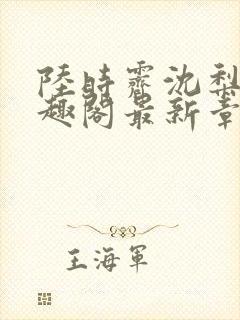 陸時霽沈梨
趣閣最新章
王海軍